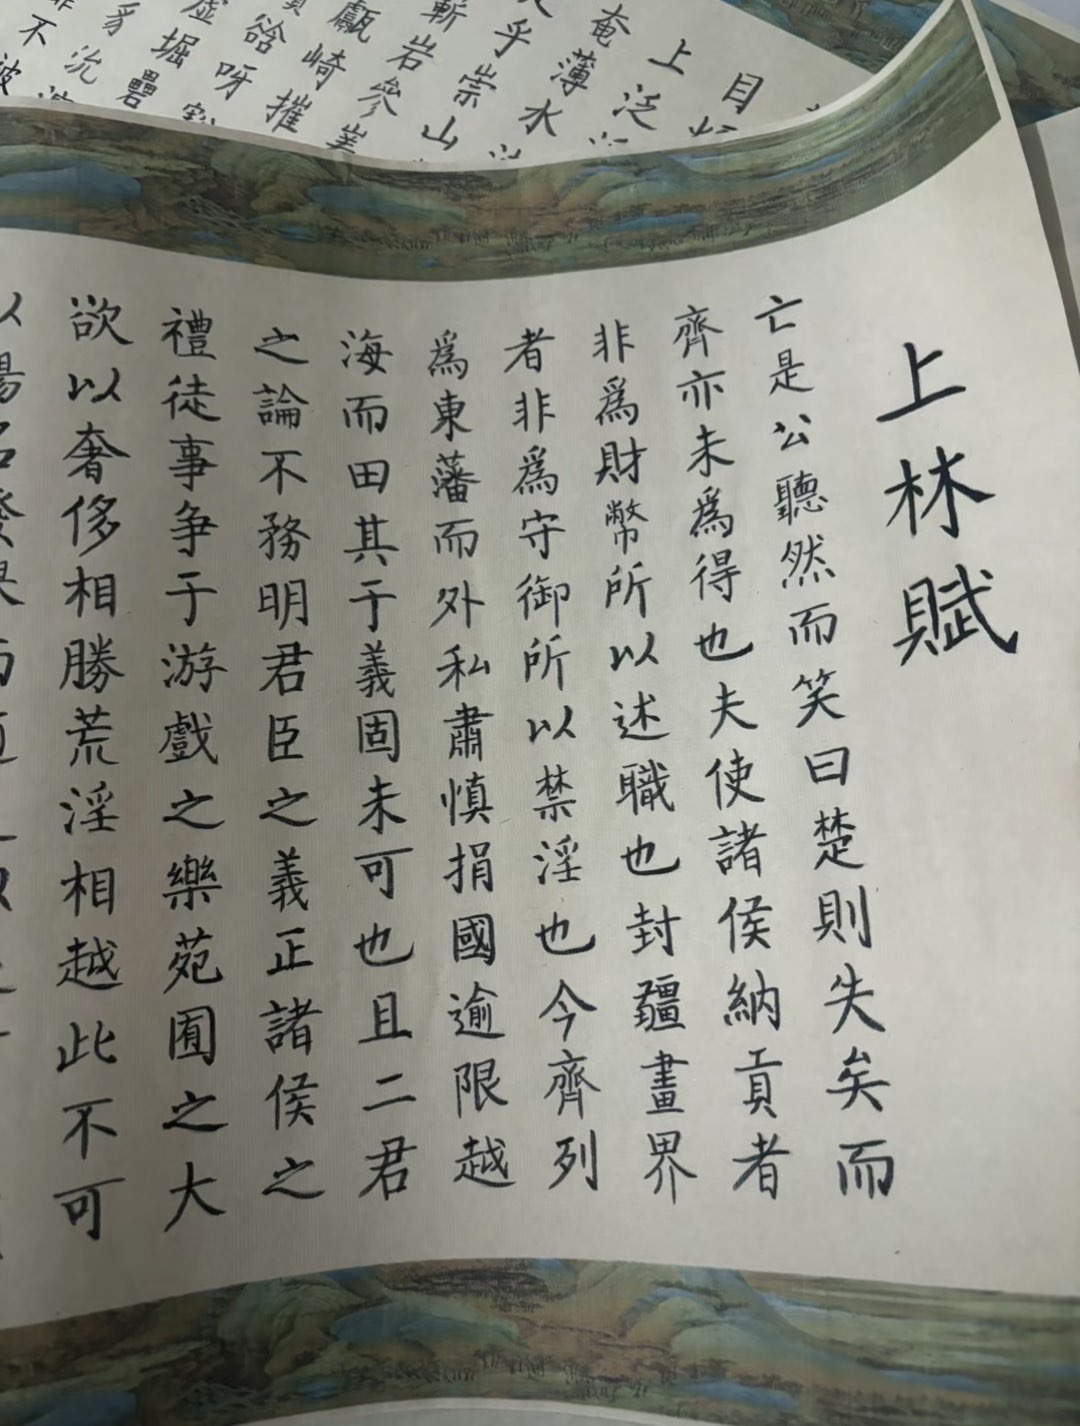 目
上泛
奄薄水
乎崇山
岩參
甗崎摧
谽呀
虛堀礨
豸沇
不被
上林賦
亡是公聽然而笑曰楚則失矣而
齊亦未爲得也夫使諸侯納貢者
非爲財幣所以述職也封疆畫界
者非爲守御所以禁淫也今齊列
爲東藩而外私肅慎捐國逾限越
海而田其于義固未可也且二君
之論不務明君臣之義正諸侯之
禮徒事争于游戲之樂苑囿之大
欲以奢侈相勝荒淫相越此不可